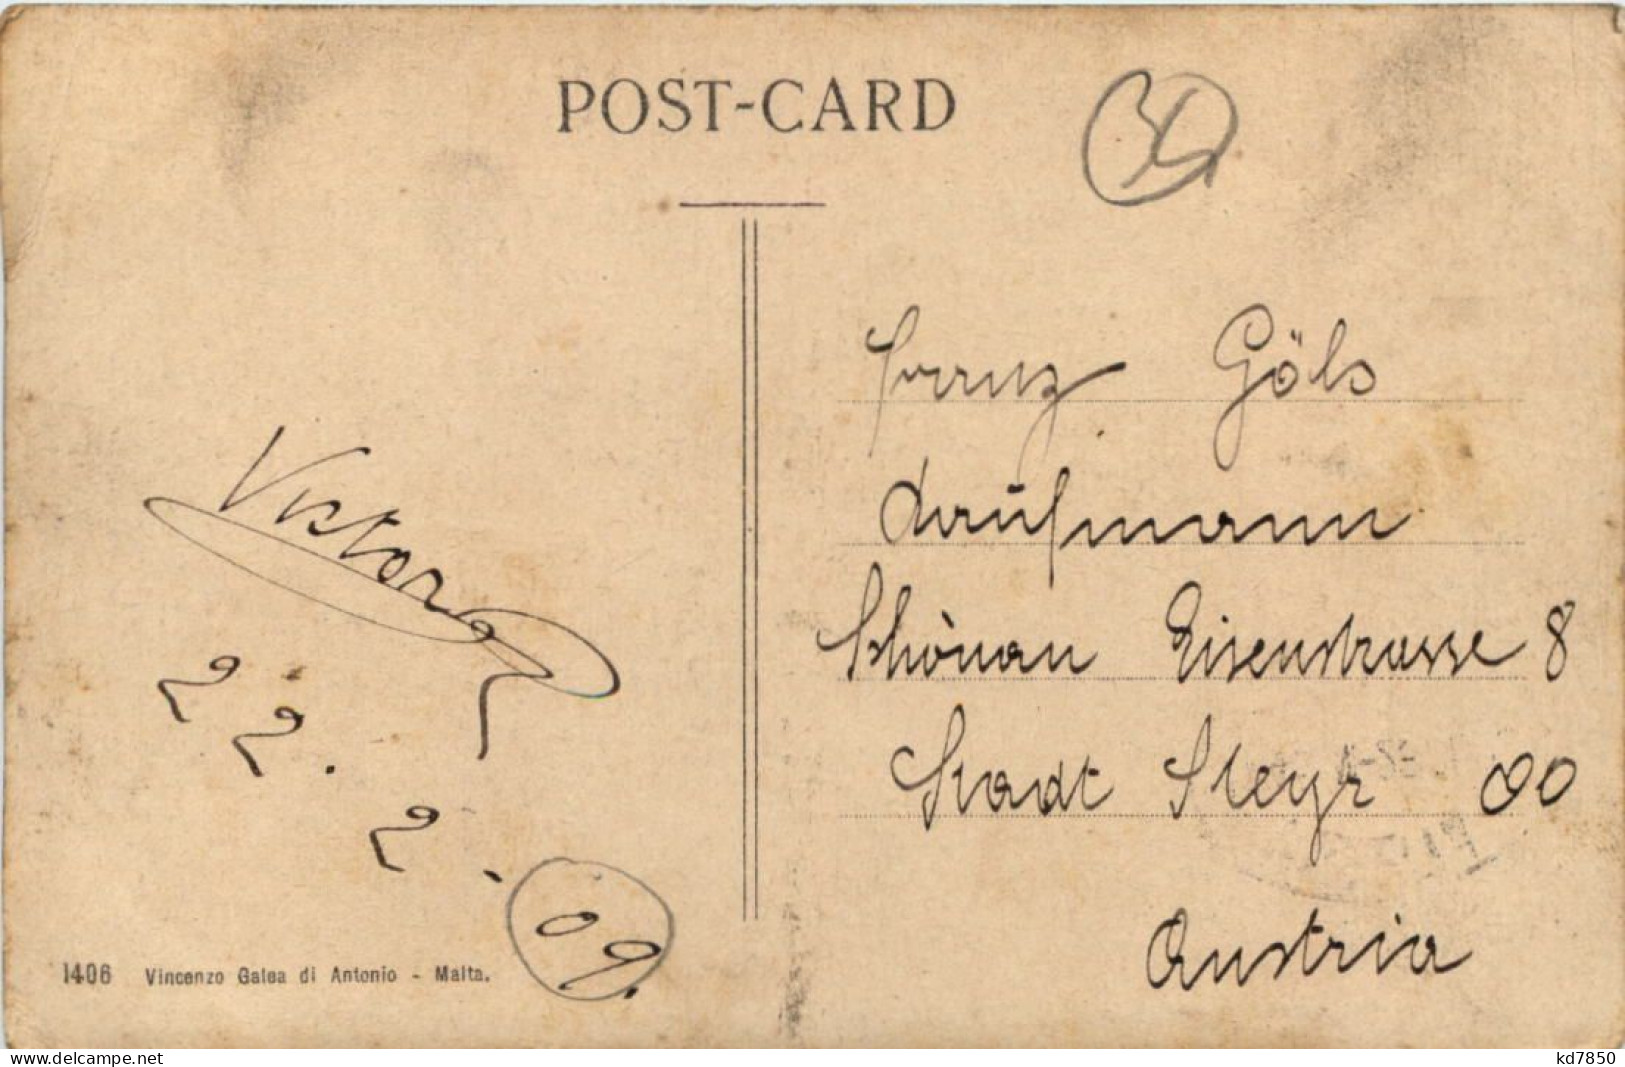 POST-CARD
Franz Göls
Kaufmann
Schönau Eisenstrasse 8
Stadt Steyr OO
Austria
Victor
22.2.09.
1406 Vincenzo Galea di Antonio - Malta.
www.delcampe.net
kd7850